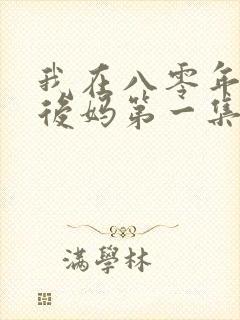 我在八零年
後妈第一集
满學林